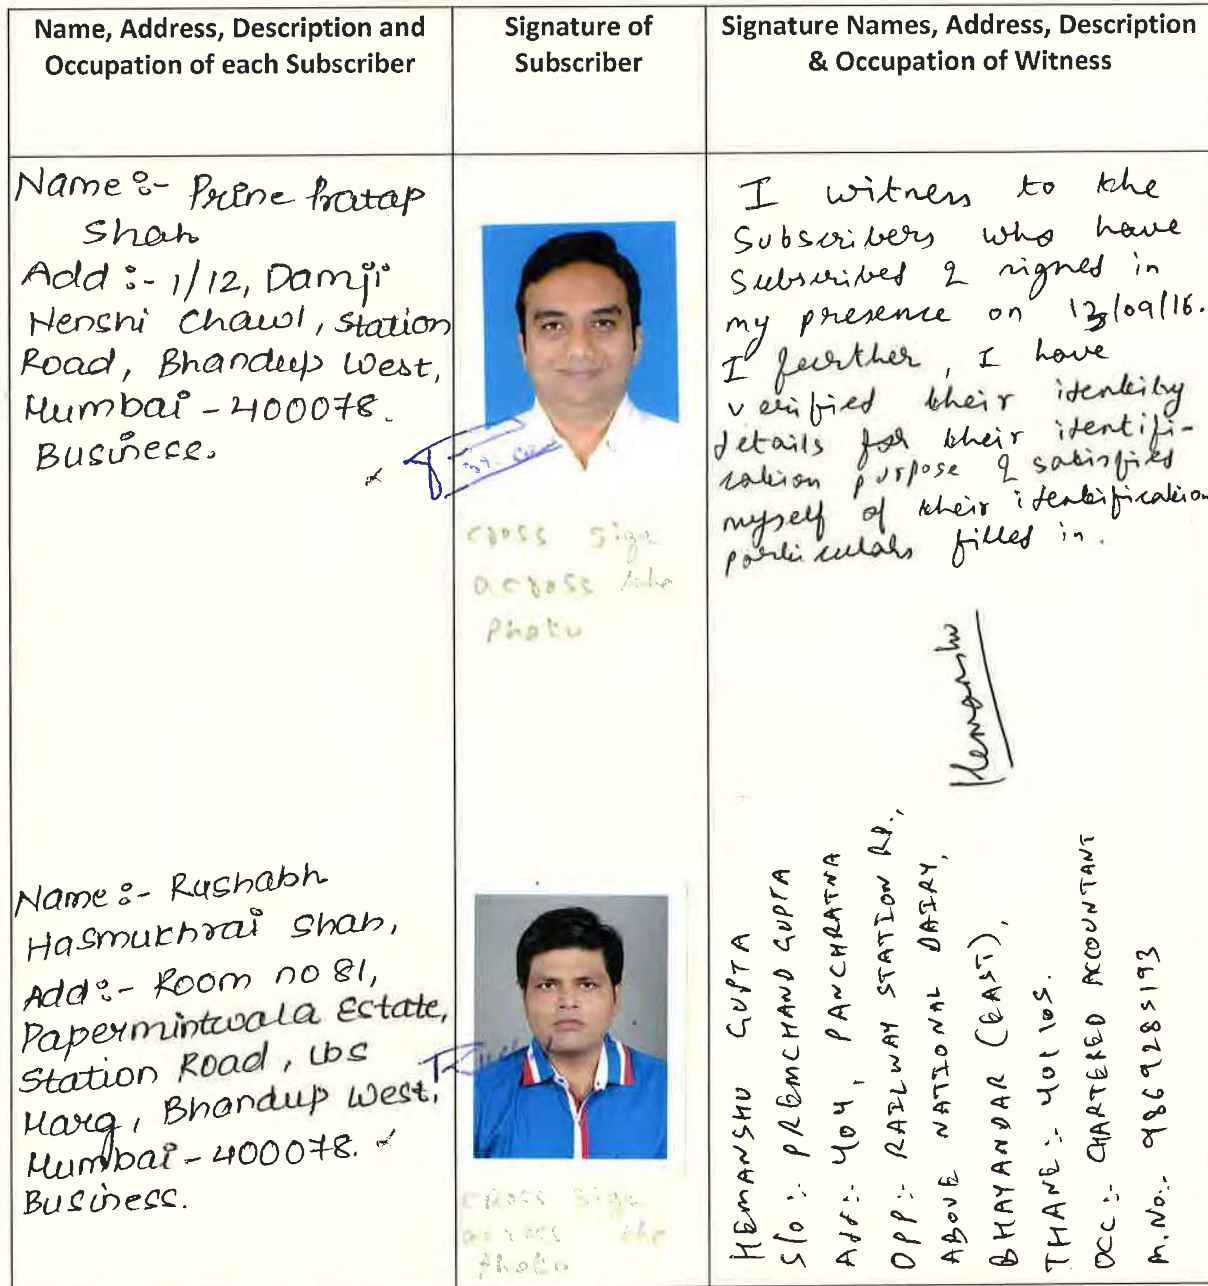 Name, Address, Description and
Occupation of each Subscriber
Signature of
Subscriber
Signature Names, Address, Description
& Occupation of Witness
Name :- Prine Pratap
Shah
Add :- 1/12, Damji
Nenshi Chawl, Station
Road, Bhandup West,
Mumbai - 400078.
Business.
cross sign
across the
photo
I witness to the
Subscribers who have
Subscribed & signed in
my presence on 13/09/16.
I further, I have
verified their identity
details for their identifi-
cation purpose & satisfied
myself of their identification
particulars filled in.
Hemanshu
Name :- Rushabh
Hasmukhrai Shah,
Add :- Room no 81,
Papermintwala Estate,
Station Road, Lbs
Marg, Bhandup West,
Mumbai - 400078.
Business.
cross sign
across the
photo
HEMANSHU GUPTA
S/o :- PREMCHAND GUPTA
Add :- 404, PANCHRATNA
OPP :- RAILWAY STATION RD.,
ABOVE NATIONAL DAIRY,
BHAYANDAR (EAST),
THANE :- 401105.
OCC :- CHARTERED ACCOUNTANT
M.No:- 9869285193